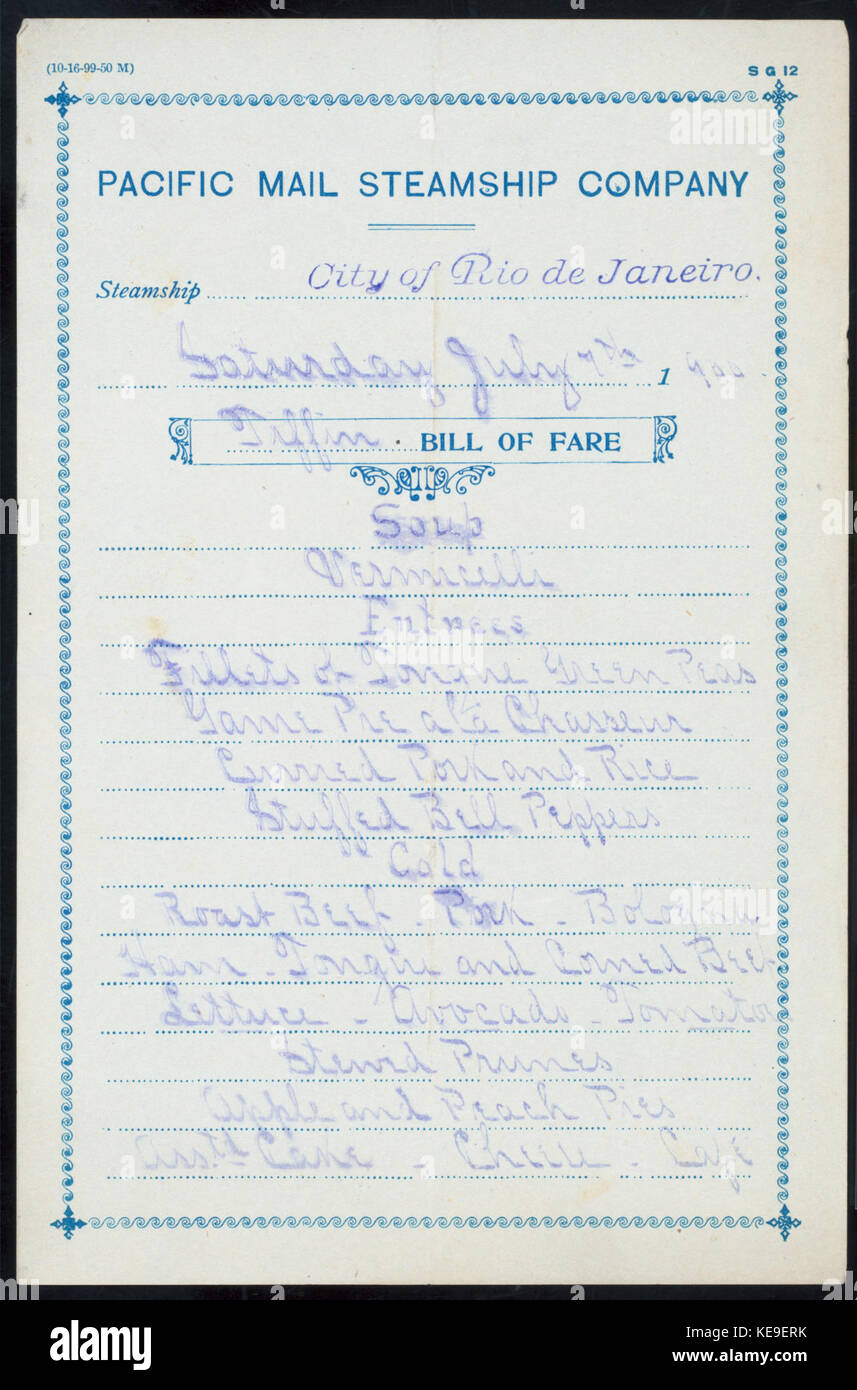 (10-16-99-50 M)
S G 12
PACIFIC MAIL STEAMSHIP COMPANY
Steamship City of Rio de Janeiro.
Saturday July 7th 1900
Tiffin BILL OF FARE
Soup
Vermicelli
Entrees
Fillets of Tongue Green Peas
Game Pie a la Chasseur
Curried Pork and Rice
Stuffed Bell Peppers
Cold
Roast Beef - Pork - Bologna
Ham - Tongue and Corned Beef
Lettuce - Avocado - Tomatoe
Stewed Prunes
Apple and Peach Pies
Asstd Cake - Cheese - Cafe
alamy
Image ID: KE9ERK
www.alamy.com